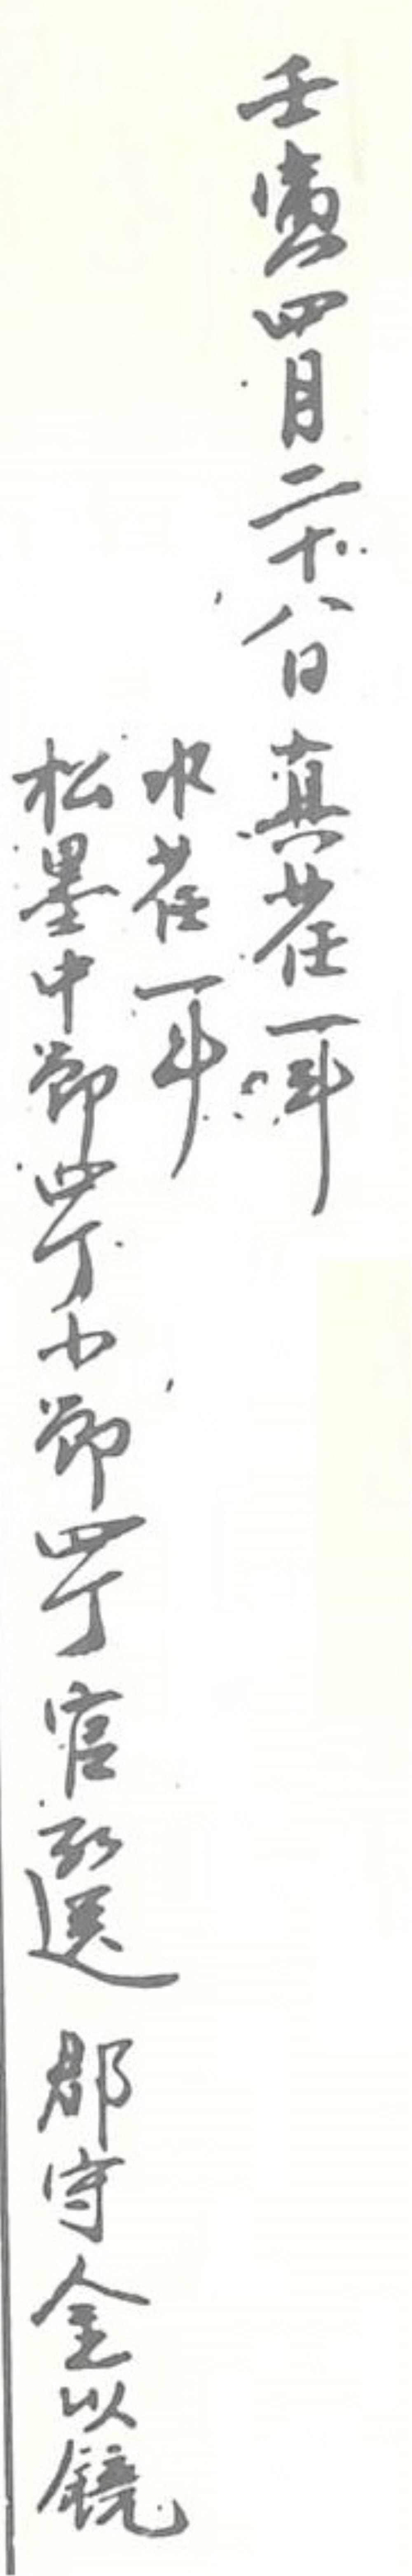 壬寅四月二十八日 真荏一斗
水荏一斗
松墨中節四丁小節四丁 官封送 郡守金以鏡